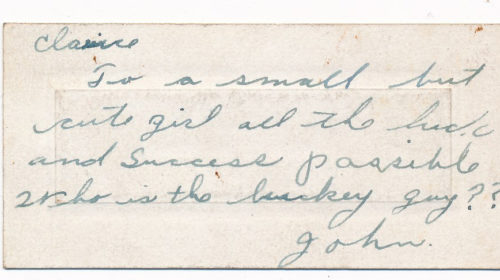 Clairice
To a small but
cute girl all the luck
and Success possible
Who is the luckey guy??
John.